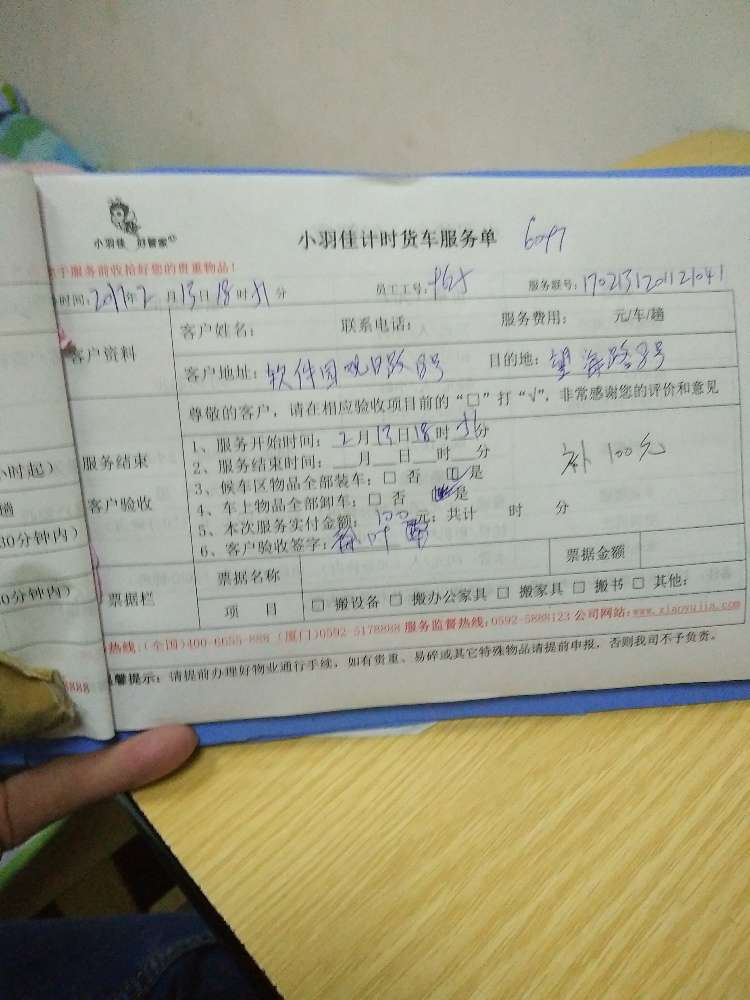 小羽佳 好管家
小羽佳计时货车服务单
于服务前收拾好您的贵重物品！
时间：2017年2月13日18时31分 员工工号： 服务联号：1702131201121041
客户资料
客户姓名： 联系电话： 服务费用： 元/车/趟
客户地址：软件园观日路8号 目的地：望海路8号
尊敬的客户，请在相应验收项目前的“□”打“√”，非常感谢您的评价和意见
服务结束
客户验收
1、服务开始时间：2月13日18时31分
2、服务结束时间：___月___日___时___分
3、候车区物品全部装车：□ 否 □ 是
4、车上物品全部卸车：□ 否 □ 是
5、本次服务实付金额：100元；共计 时 分
6、客户验收签字：
补100元
票据栏
票据名称 票据金额
项 目 □ 搬设备 □ 搬办公家具 □ 搬家具 □ 搬书 □ 其他：
热线：(全国)400-6655-888 (厦门)0592-5178888 服务监督热线：0592-5888123 公司网站：www.xiaoyujia.com
馨提示：请提前办理好物业通行手续，如有贵重、易碎或其它特殊物品请提前申报，否则我司不予负责。
小时起）
30分钟内）
0分钟内）
8888